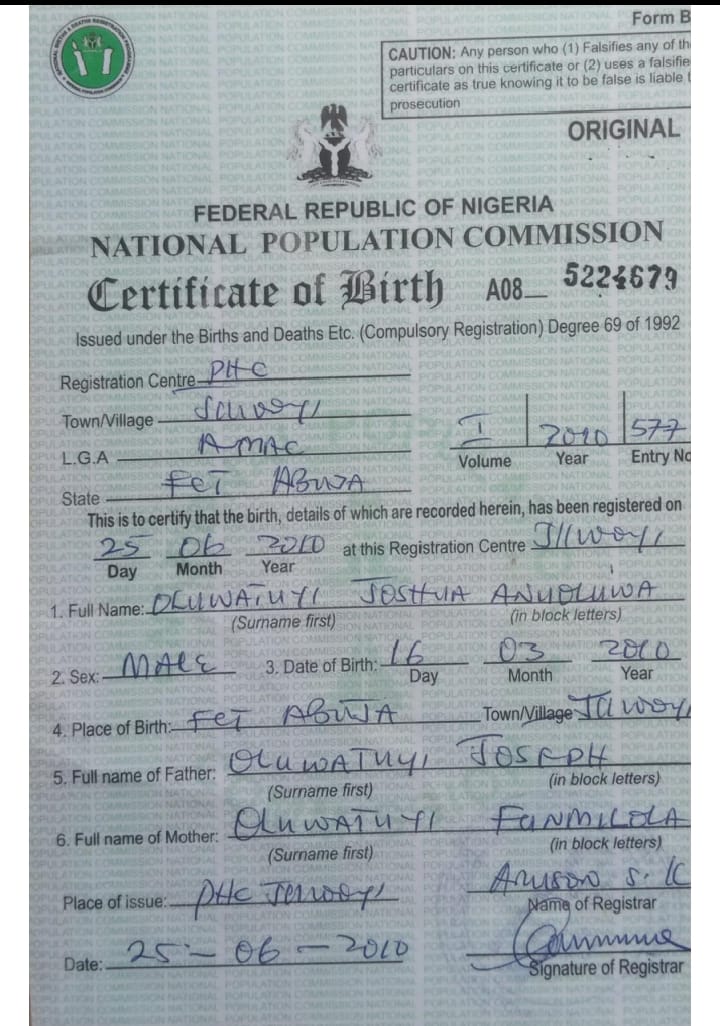 Form B
CAUTION: Any person who (1) Falsifies any of th
particulars on this certificate or (2) uses a falsifie
certificate as true knowing it to be false is liable t
prosecution
ORIGINAL
FEDERAL REPUBLIC OF NIGERIA
NATIONAL POPULATION COMMISSION
Certificate of Birth A08 5224679
Issued under the Births and Deaths Etc. (Compulsory Registration) Degree 69 of 1992
Registration Centre PHC
Town/Village
L.G.A AMAC
I 2010 577
Volume Year Entry No
State FCT ABUJA
This is to certify that the birth, details of which are recorded herein, has been registered on
25 06 2010 at this Registration Centre
Day Month Year
1. Full Name: OLUWATUYI JOSHUA ANUOLUWA
(Surname first) (in block letters)
2. Sex: MALE 3. Date of Birth: 16 03 2010
Day Month Year
4. Place of Birth: FCT ABUJA Town/Village
5. Full name of Father: OLUWATUYI JOSEPH
(Surname first) (in block letters)
6. Full name of Mother: OLUWATUYI FUNMILOLA
(Surname first) (in block letters)
Place of issue: PHC
S. K
Name of Registrar
Date: 25 - 06 - 2010
Signature of Registrar